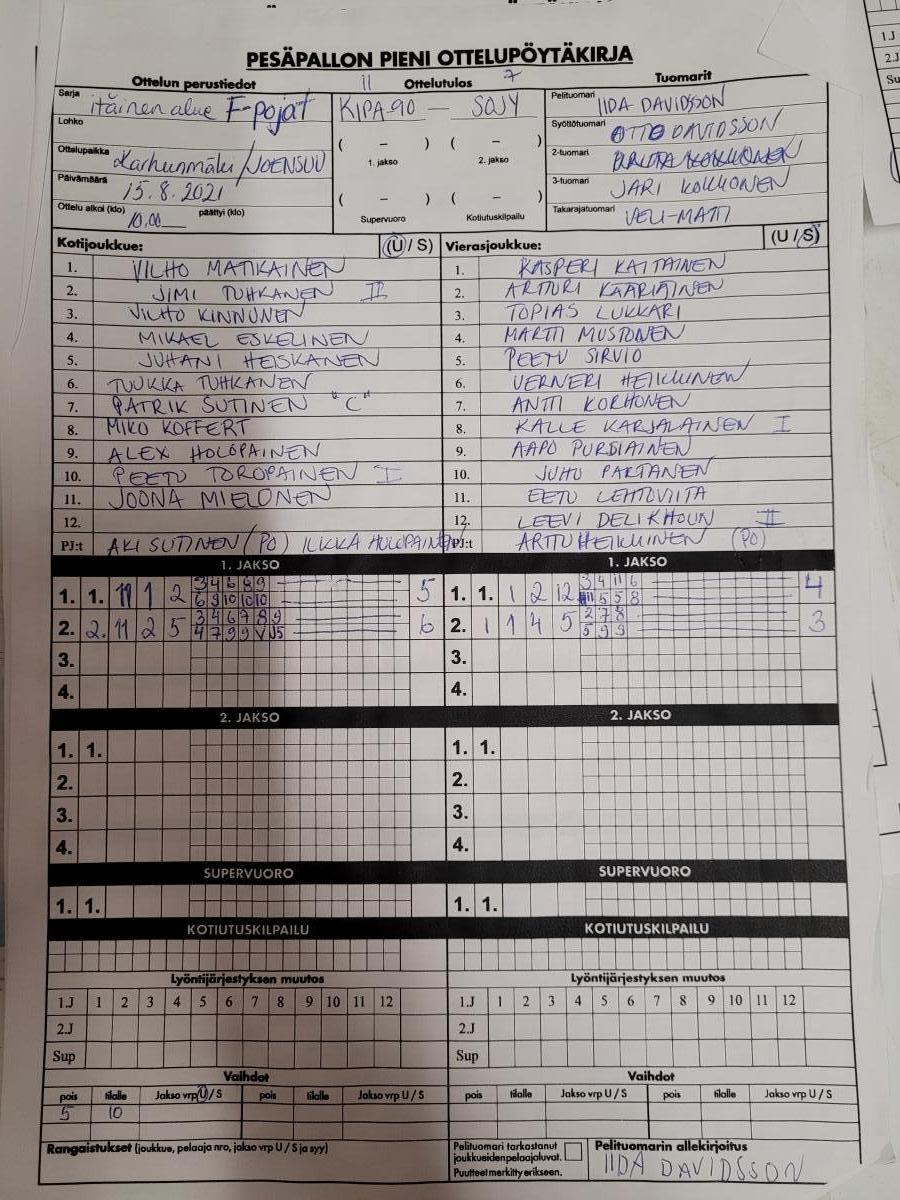 PESÄPALLON PIENI OTTELUPÖYTÄKIRJA
Ottelun perustiedot
Ottelutulos
Tuomarit
11 7
Sarja itäinen alue F-pojat
KIPA-90 — SOJY
Pelituomari IIDA DAVIDSSON
Lohko
Syöttötuomari OTTO DAVIDSSON
( – ) ( – )
1. jakso 2. jakso
Ottelupaikka Karhunmäki / JOENSUU
2-tuomari
Päivämäärä 15.8.2021
3-tuomari JARI KOKKONEN
( – ) ( – )
Supervuoro Kotiutuskilpailu
Ottelu alkoi (klo) 10.00 päättyi (klo)
Takarajatuomari VELI-MATTI
Kotijoukkue: (U / S)
1. VILHO MATIKAINEN
2. JIMI TUHKANEN II
3. VILHO KINNUNEN
4. MIKAEL ESKELINEN
5. JUHANI HEISKANEN
6. TUUKKA TUHKANEN
7. PATRIK SUTINEN "C"
8. MIKO KOFFERT
9. ALEX HOLOPAINEN
10. PEETU TOROPAINEN I
11. JOONA MIELONEN
12.
PJ:t AKI SUTINEN (PO) ILKKA HOLOPAINEN
Vierasjoukkue: (U / S)
1. KASPERI KAITAINEN
2. ARTTURI KÄÄRIÄINEN
3. TOPIAS LUKKARI
4. MARTTI MUSTONEN
5. PEETU SIRVIÖ
6. VERNERI HEIKKINEN
7. ANTTI KORHONEN
8. KALLE KARJALAINEN I
9. AAPO PURSIAINEN
10. JUHO PARTANEN
11. EETU LEHTOVIITA
12. LEEVI DELIKHOUN II
PJ:t ARTTU HEIKKINEN (PO)
1. JAKSO 1. JAKSO
1. 1. 11 1 2 3 4 6 8 9 5
6 9 10 10 10
2. 2. 11 2 5 3 4 6 7 8 9 6
4 7 9 9 V J5
3.
4.
1. 1. 1 2 12 3 4 11 6 4
11 5 5 8
2. 1 1 4 5 2 7 8 3
5 9 9
3.
4.
2. JAKSO 2. JAKSO
1. 1. 1. 1.
2. 2.
3. 3.
4. 4.
SUPERVUORO SUPERVUORO
1. 1. 1. 1.
KOTIUTUSKILPAILU KOTIUTUSKILPAILU
Lyöntijärjestyksen muutos Lyöntijärjestyksen muutos
1.J 1 2 3 4 5 6 7 8 9 10 11 12 1.J 1 2 3 4 5 6 7 8 9 10 11 12
2.J 2.J
Sup Sup
Vaihdot Vaihdot
pois tilalle Jakso vrp U / S pois tilalle Jakso vrp U / S pois tilalle Jakso vrp U / S pois tilalle Jakso vrp U / S
5 10
Rangaistukset (joukkue, pelaaja nro, jakso vrp U / S ja syy)
Pelituomari tarkastanut
joukkueiden pelaajaluvat.
Puutteet merkitty erikseen.
Pelituomarin allekirjoitus
IIDA DAVIDSSON
1.J
2.J
Su